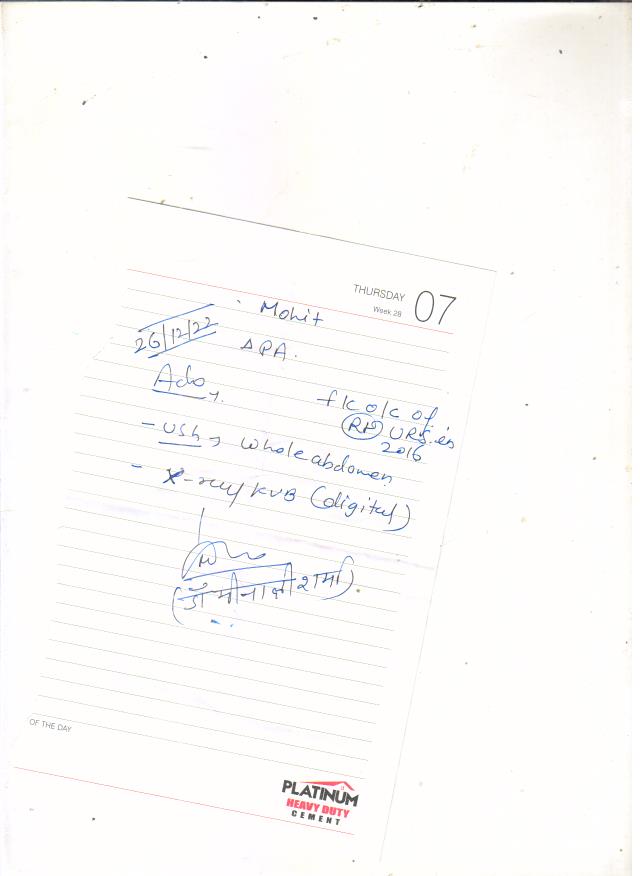 THURSDAY 07
Week 28
Mohit
26/12/22
Δ PA.
Ado
f/c o/c of
RP URS in
2016
- USG whole abdomen
- X-ray KUB (digital)
(डॉ मीनाक्षी शर्मा)
OF THE DAY
PLATINUM
HEAVY DUTY
CEMENT